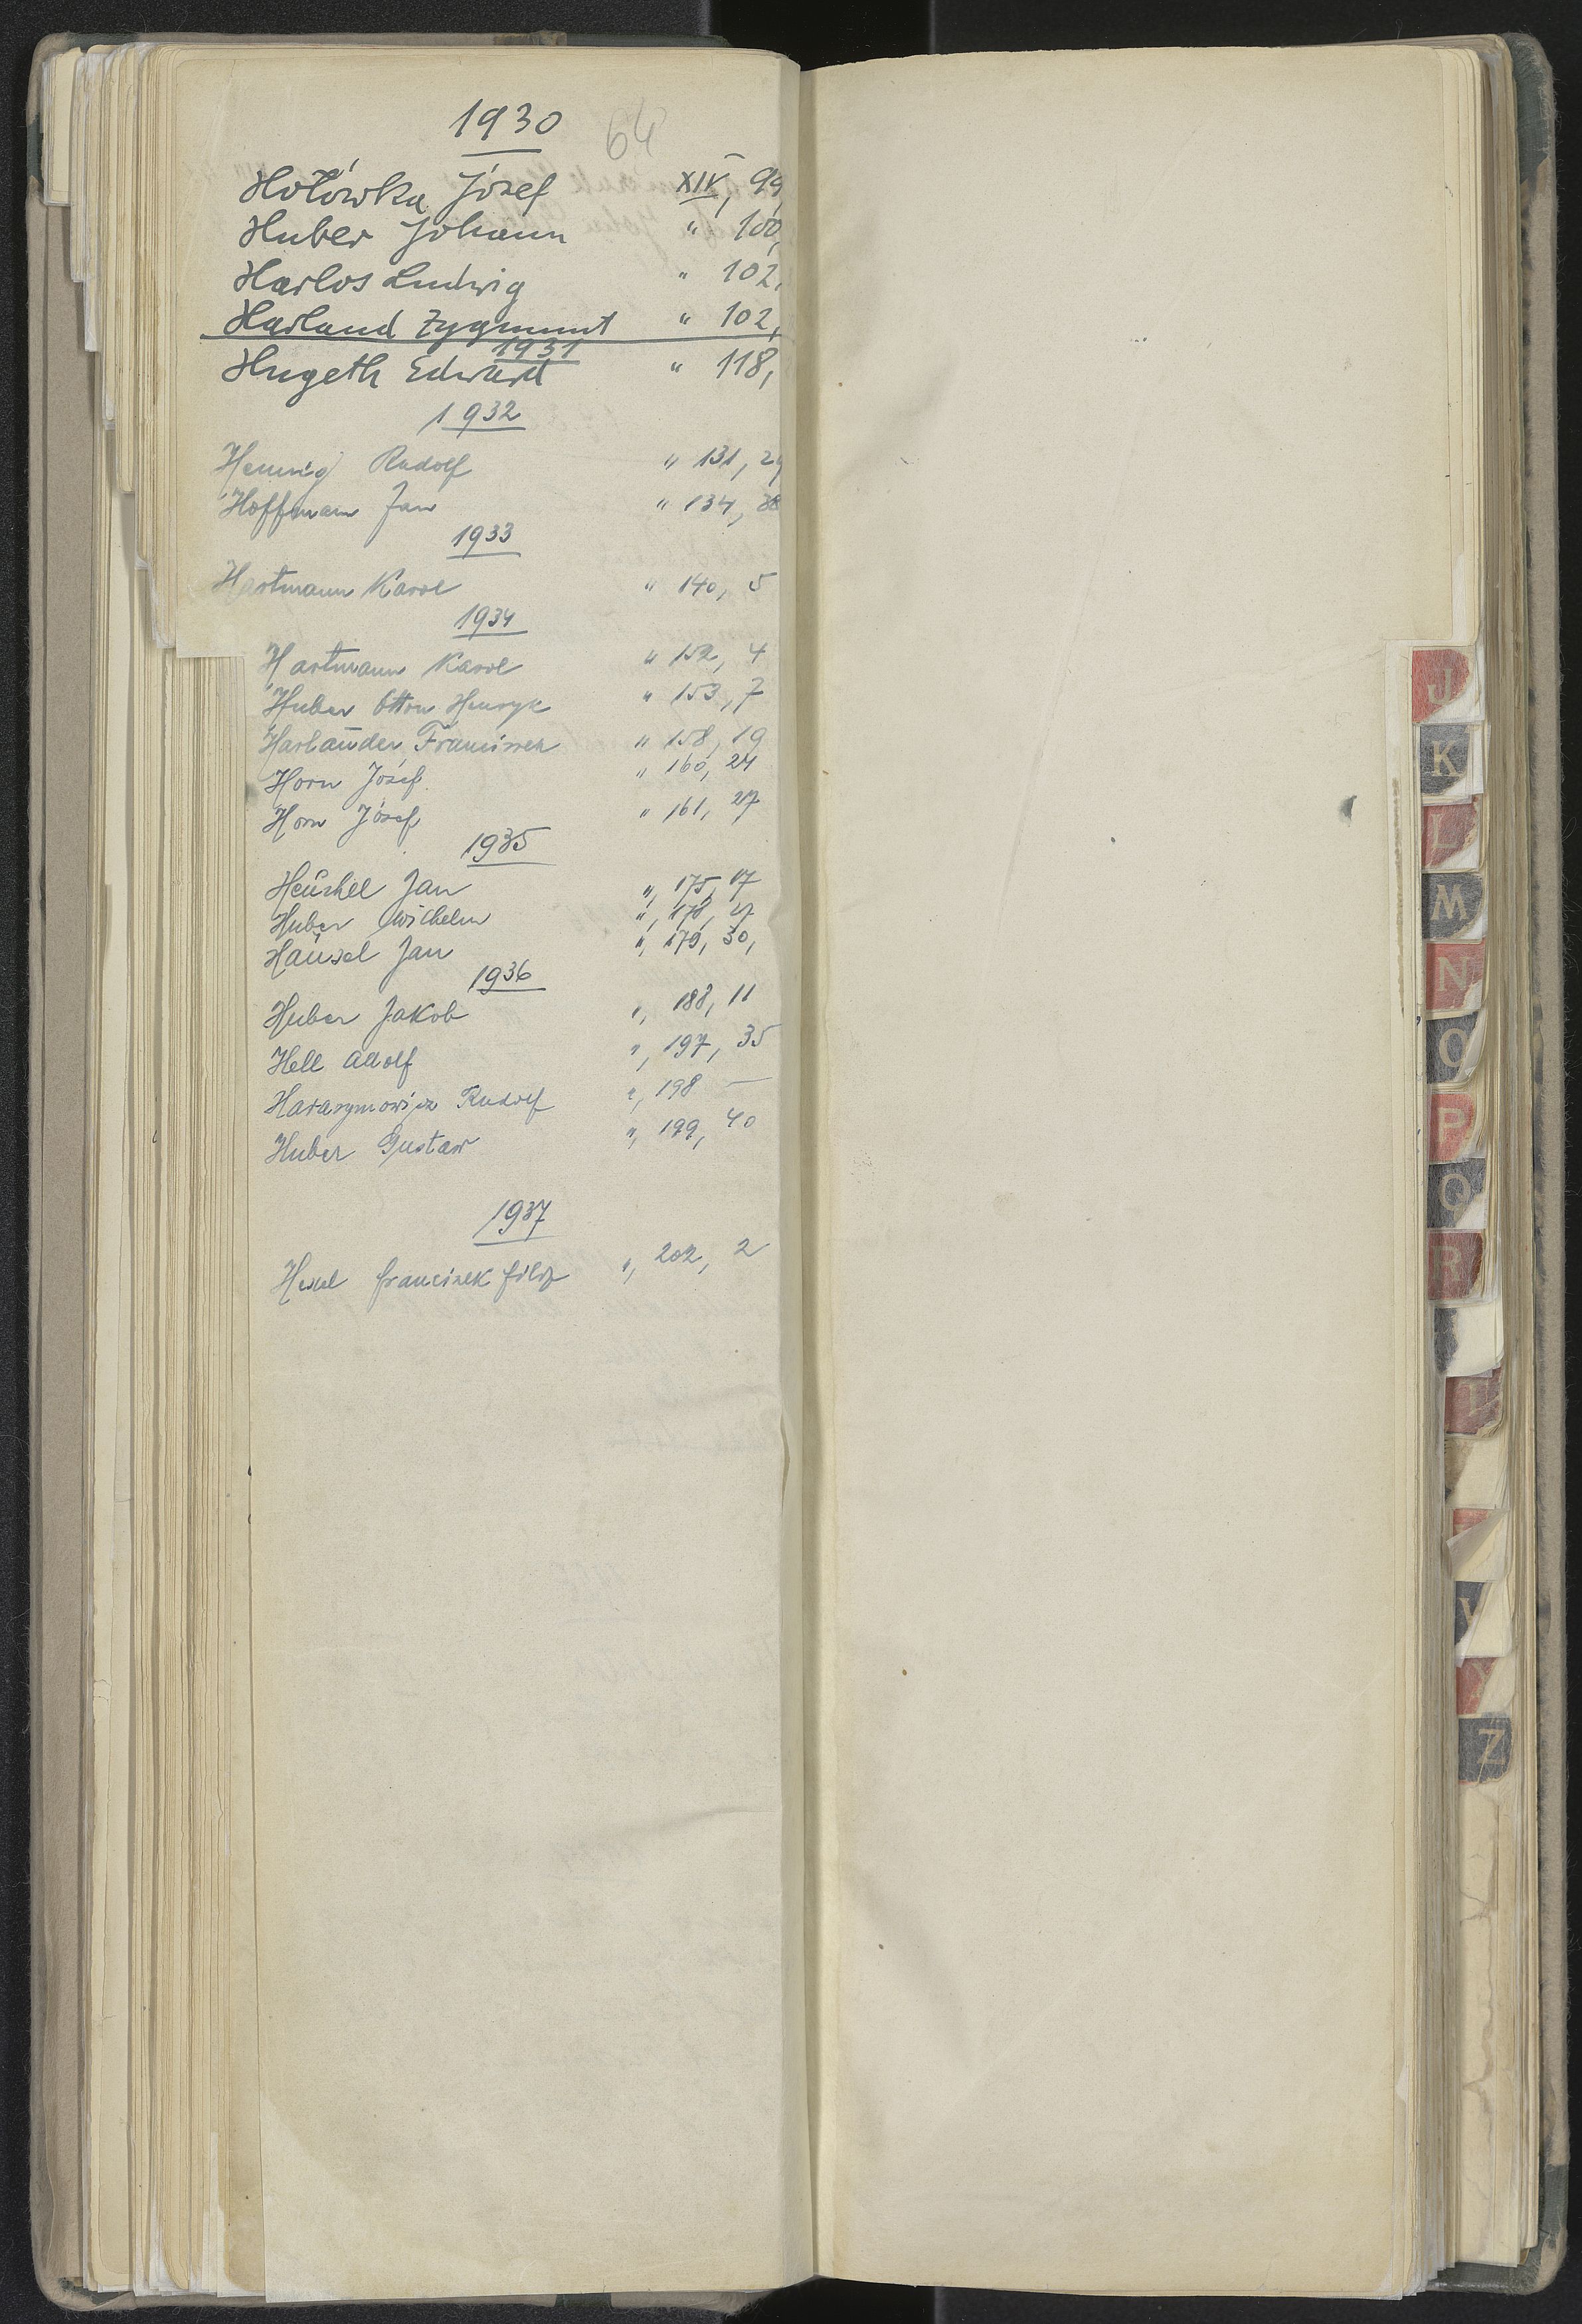 1930
64
Hołówka Józef XIV, 99,
Huber Johann " 100,
Harlos Ludwig " 102,
Harland Zygmunt " 102,
1931
Hugeth Edward " 118,
1932
Hennig Rudolf " 131, 29
Hoffmann Jan " 134, 38
1933
Hartmann Karol " 140, 5
1934
Hartmann Karol " 152, 4
Huber Otton Henryk " 153, 7
Harländer Franciszek " 158, 19
Horn Józef " 160, 24
Horn Józef " 161, 27
1935
Heuchel Jan " 175, 17
Huber Wilhelm " 178, 27
Häusel Jan " 179, 30,
1936
Huber Jakob " 188, 11
Hell Adolf " 197, 35
Harasymowicz Rudolf " 198 —
Huber Gustaw " 199, 40
1937
Hexel Franciszek Filip " 202, 2
J
K
L
M
N
O
P
Q
R
Z